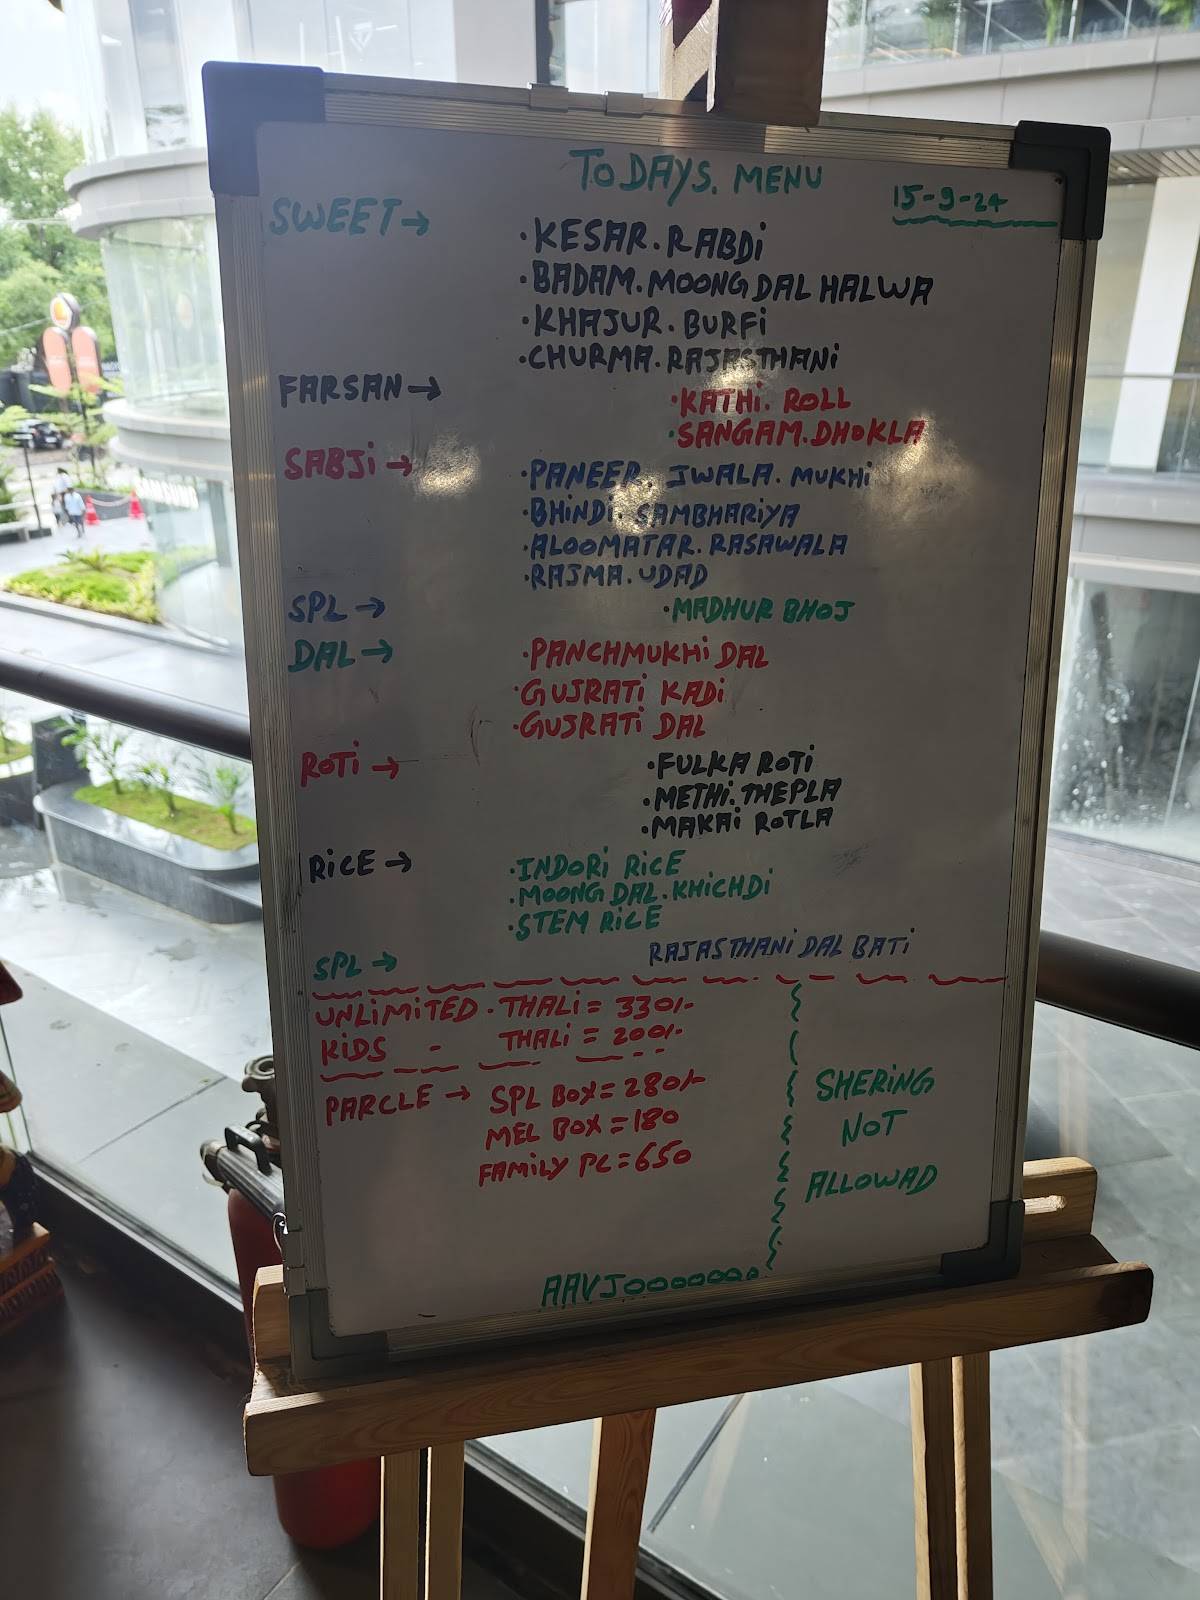 TODAYS. MENU
15-9-24
SWEET→
·KESAR.RABDi
·BADAM.MOONG DAL HALWA
·KHAJUR.BURFi
·CHURMA.RAJASTHANi
FARSAN→
·KATHi.ROLL
·SANGAM.DHOKLA
SABJi→
·PANEER.JWALA.MUKHi
·BHiNDi.SAMBHARiYA
·ALOOMATAR.RASAWALA
·RAJMA.UDAD
SPL→ ·MADHUR BHOJ
DAL→ ·PANCHMUKHi DAL
·GUJRATi KADi
·GUJRATi DAL
ROTi→ ·FULKA ROTi
·METHi.THEPLA
·MAKAi ROTLA
RiCE→ ·INDORi RiCE
·MOONG DAL.KHiCHDi
·STEM RiCE
SPL→ RAJASTHANi DAL BATi
UNLiMiTED.THALi = 330/-
KiDS - THALi = 200/-
PARCLE→ SPL BOX = 280/-
MEL BOX = 180
FAMiLY PC = 650
SHERiNG
NOT
ALLOWAD
AAVJOOOOOOOO